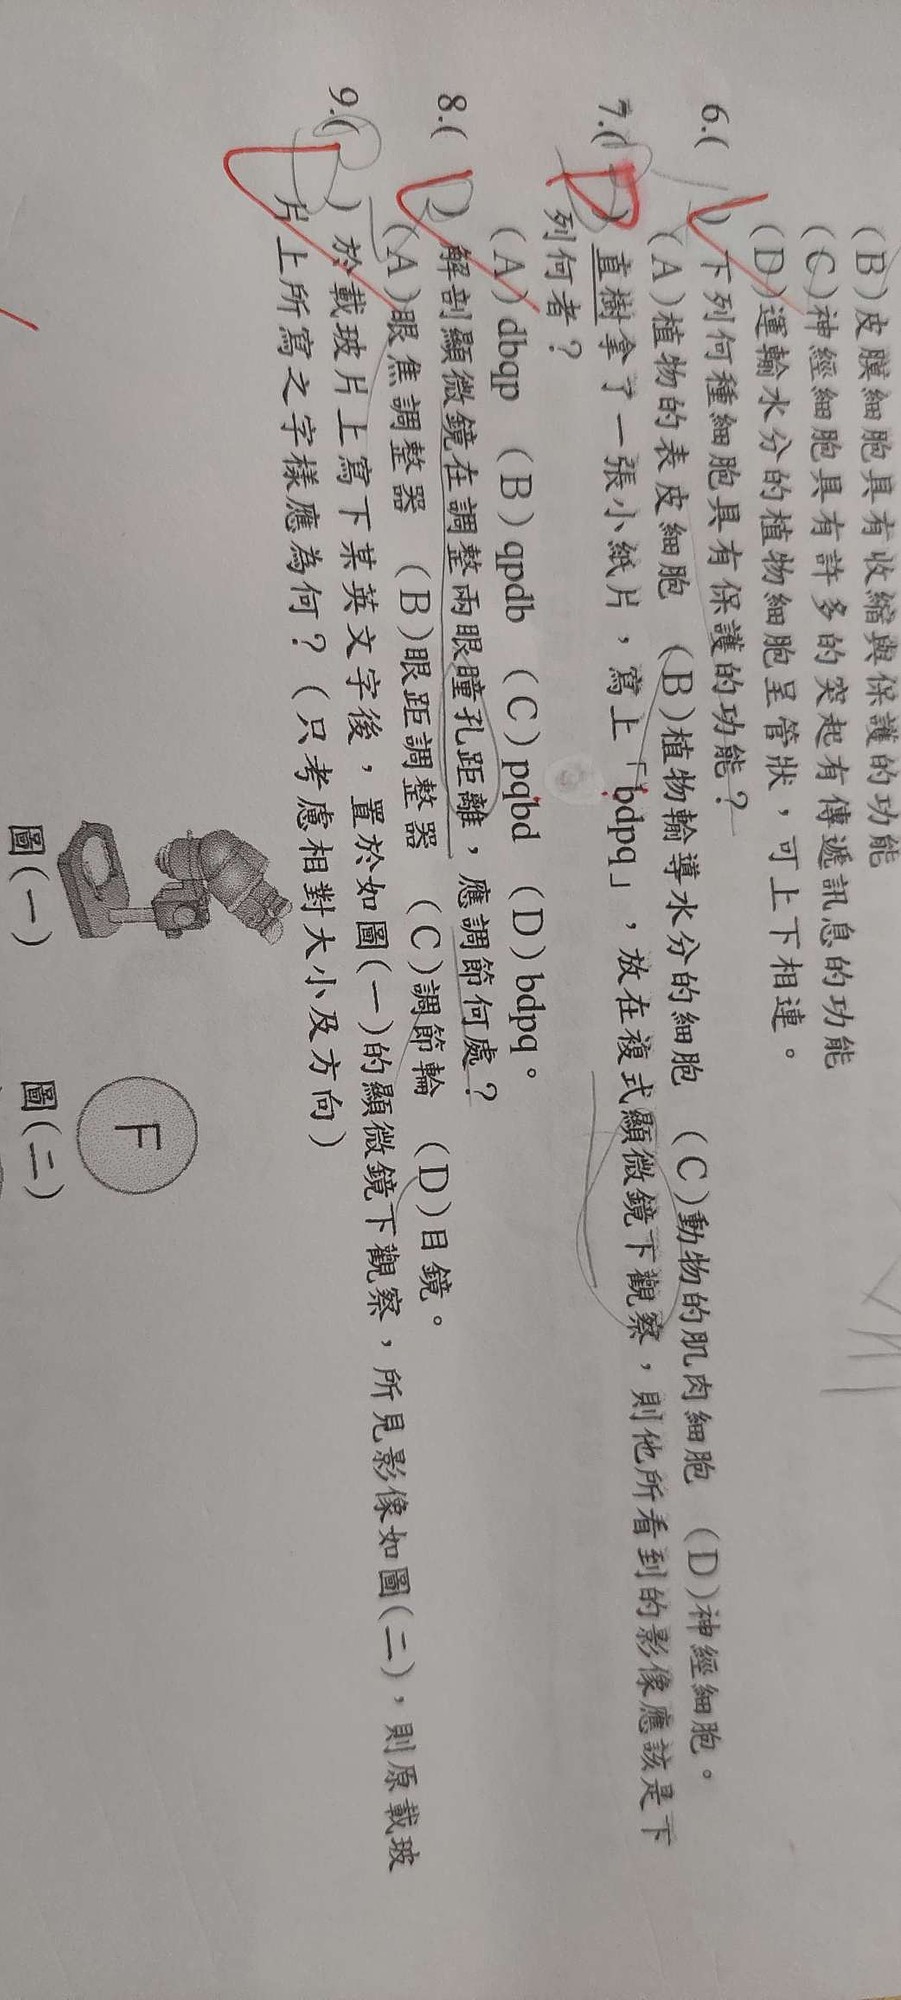 (B)皮膜細胞具有收縮與保護的功能
(C)神經細胞具有許多的突起有傳遞訊息的功能
(D)運輸水分的植物細胞呈管狀，可上下相連。
6.( )下列何種細胞具有保護的功能？
(A)植物的表皮細胞 (B)植物輸導水分的細胞 (C)動物的肌肉細胞 (D)神經細胞。
7.(D)直樹拿了一張小紙片，寫上「bdpq」，放在複式顯微鏡下觀察，則他所看到的影像應該是下
列何者？
(A)dbqp (B)qpdb (C)pqbd (D)bdpq。
8.( )解剖顯微鏡在調整兩眼瞳孔距離，應調節何處？
(A)眼焦調整器 (B)眼距調整器 (C)調節輪 (D)目鏡。
9.( )於載玻片上寫下某英文字後，置於如圖(一)的顯微鏡下觀察，所見影像如圖(二)，則原載玻
片上所寫之字樣應為何？（只考慮相對大小及方向）
F
圖(一) 圖(二)